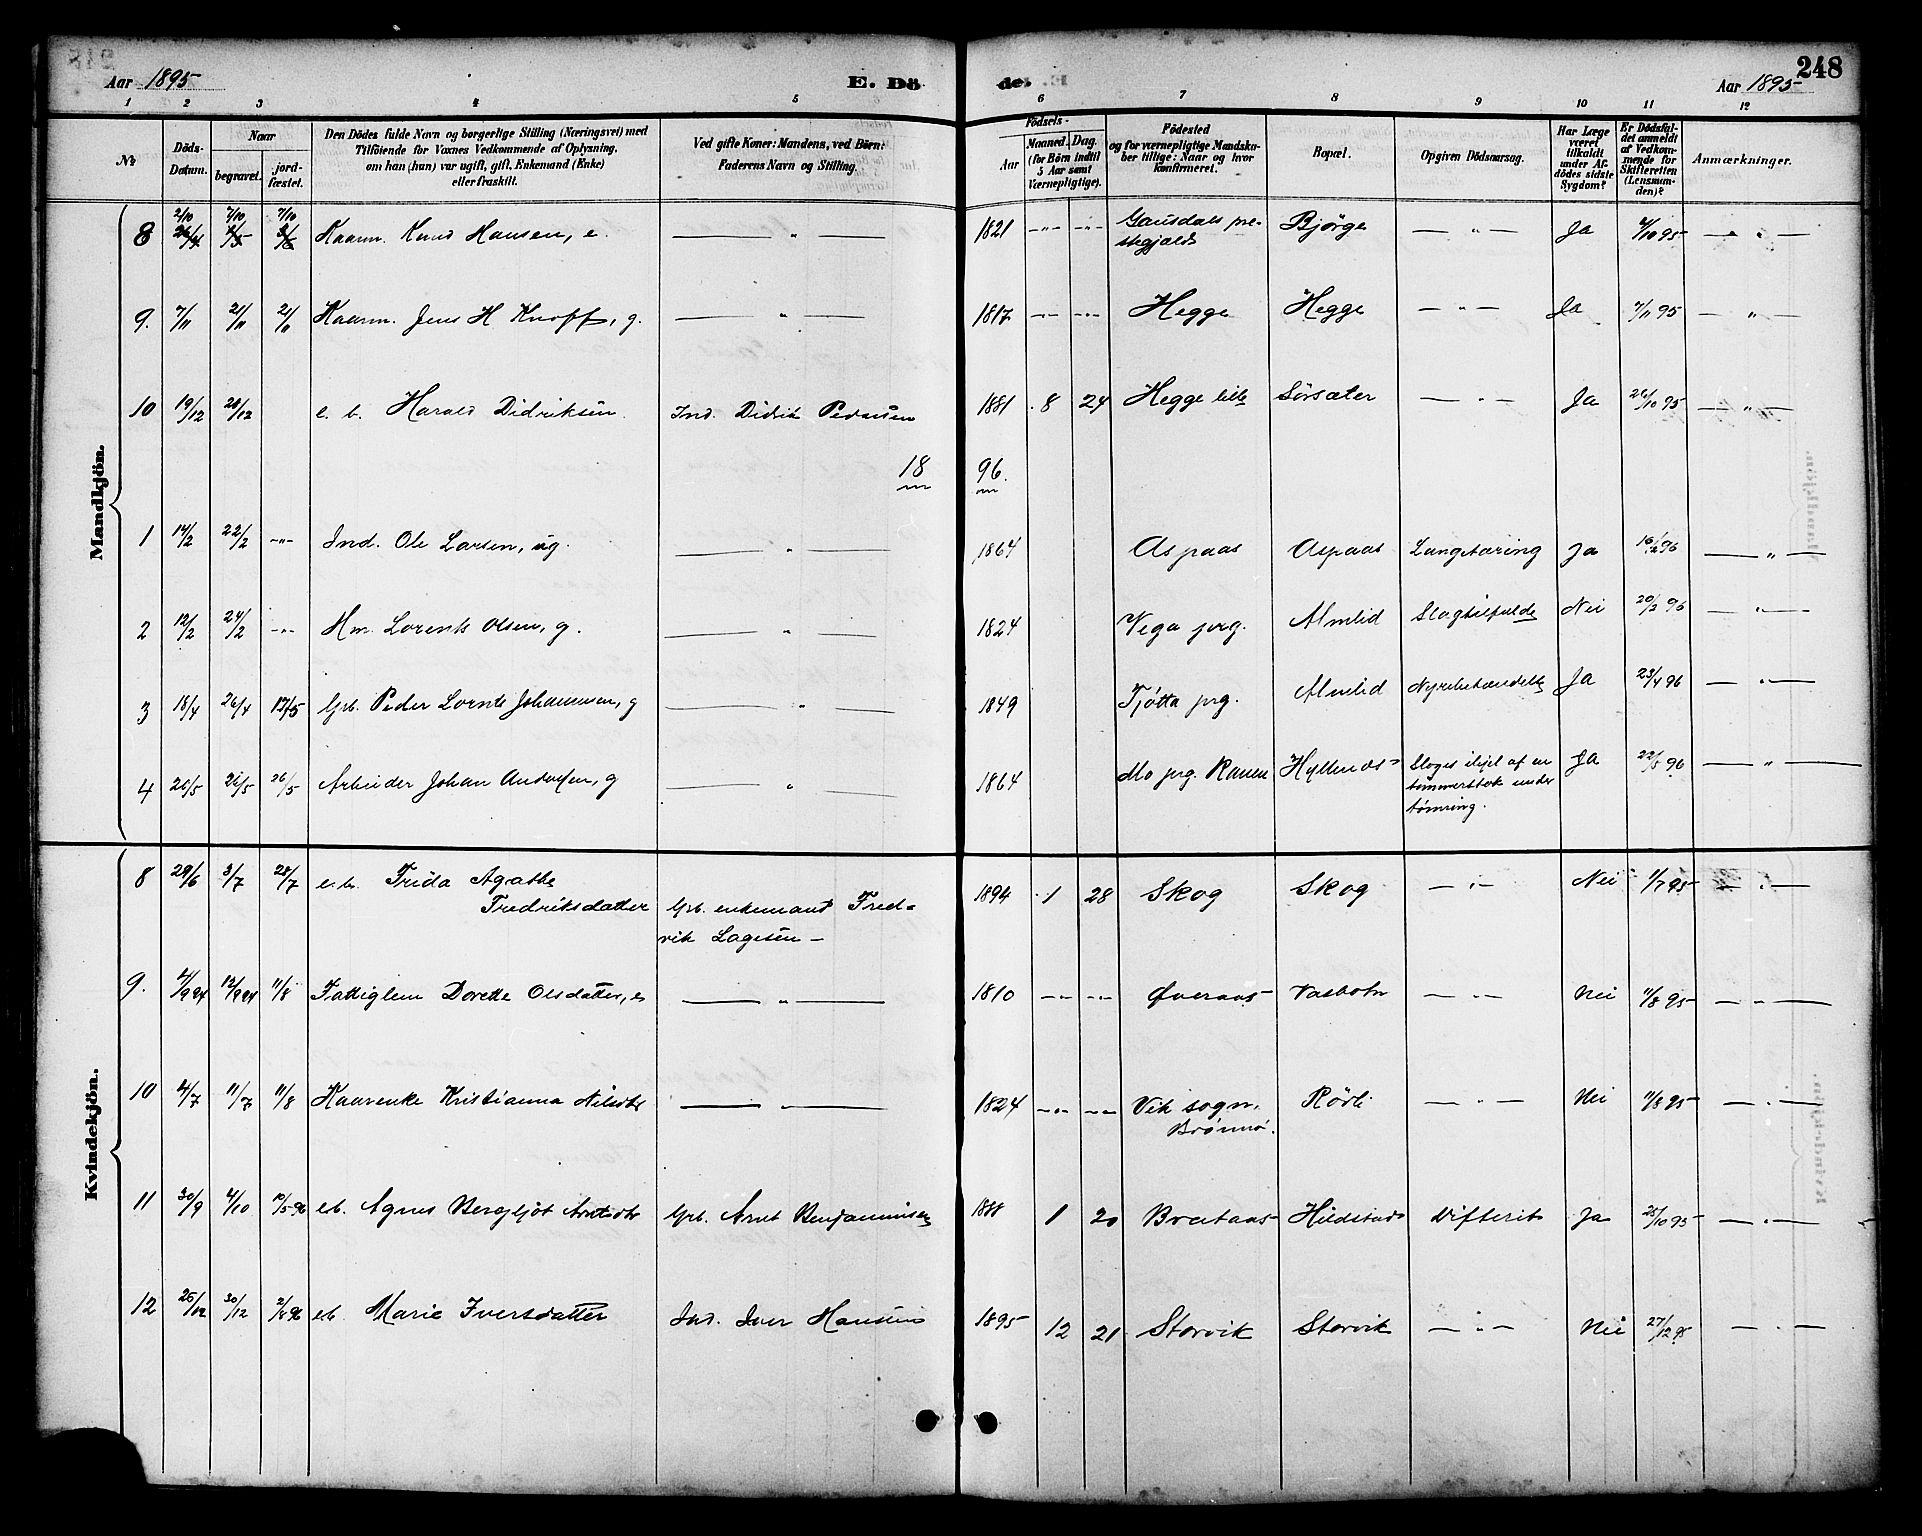 248
Aar 1895
E. Dö
de.
Aar 1895
1 2 3 4 5 6 7 8 9 10 11 12
No
Döds-Datum.
Naar
begravet.
jordfæstet.
Den Dödes fulde Navn og borgerlige Stilling (Næringsvei) med
Tilföiende for Voxnes Vedkommende af Oplysning,
om han (hun) var ugift, gift, Enkemand (Enke)
eller fraskilt.
Ved gifte Koner: Mandens, ved Börn:
Faderens Navn og Stilling.
Födsels-
Aar
Maaned. Dag.
(for Börn indtil
5 Aar samt
Værnepligtige).
Födested
og for værnepligtige Mandska-
ber tillige: Naar og hvor
konfirmeret.
Bopæl.
Opgiven Dödsaarsag.
Har Læge
været
tilkaldt
under Af-
dödes sidste
Sygdom?
Er Dödsfal-
det anmeldt
af Vedkom-
mende for
Skifteretten
(Lensman-
den)?
Anmærkninger.
Mandkjön.
8 2/10 7/10 7/10 Kaarm. Knud Hansen, e. — " — 1821 -"- -"- Gausdals pre-
stegjeld Bjørge — " — Ja 4/10 95 — " —
9. 7/11 21/11 21/11 Kaarm. Jens H Knoff, g. — " — 1817 -"- -"- Hegge Hegge — " — Ja 7/11 95 — " —
10 19/12 28/12 e. b. Harald Didriksen Ind. Didrik Pedersen 1881 8 24 Hegge lille Sørsæter — " — Ja 26/10 95 — " —
18 96.
1 14/2 22/2 -"- Ind. Ole Larsen, ug. — " — 1864 Aspaas Aspaas Lungetæring Ja 16/2 96 — " —
2 12/2 24/2 -"- Hm. Lorents Olsen, g. — " — 1824 Vega prg. Almlid Slagtilfælde Nei 20/2 96 — " —
3 18/4 26/4 17/5 Grb. Peder Lornts Johannesen, g — " — 1849 Tjøtta prg. Almlid Nyrebetændelse Ja 23/4 96 — " —
4 20/5 26/5 26/5 Arbeider Johan Andersen, g — " — 1864 Mo prg. Ranen Sloges ihjel af en
tømmerstok under
tømring. Ja 22/5 96 — " —
Kvindekjön.
8 29/6 3/7 28/7 e.b. Frida Agathe
Fredriksdatter Grb. enkemand Fred-
rik Lagesen — 1894 1 28 Skog Skog — " — Nei 1/7 95 — " —
9. 4/9 94 12/9 94 11/8 Fattiglem Dorette Olsdatter, e — " — 1810 -"- -"- Øveraas Vasbotn — " — Nei 11/8 95 — " —
10 4/7 11/7 11/8 Kaarenke Kristianna Nilsdtr — " — 1824 -"- -"- Vik sogn,
Brønnø. Rørli — " — Nei 11/8 95 — " —
11 30/9 4/10 10/5 96 e.b. Agnes Bergljot Arntsdtr Grb. Arnt Benjaminsen 1888 1 20 Brataas Hildstad Difterit Ja 25/10 95 — " —
12 25/12 30/12 2/8 96 e.b. Marie Iversdatter Ind. Iver Hansen 1895 12 21 Storvik Storvik — " — Nei 27/12 95 — " —